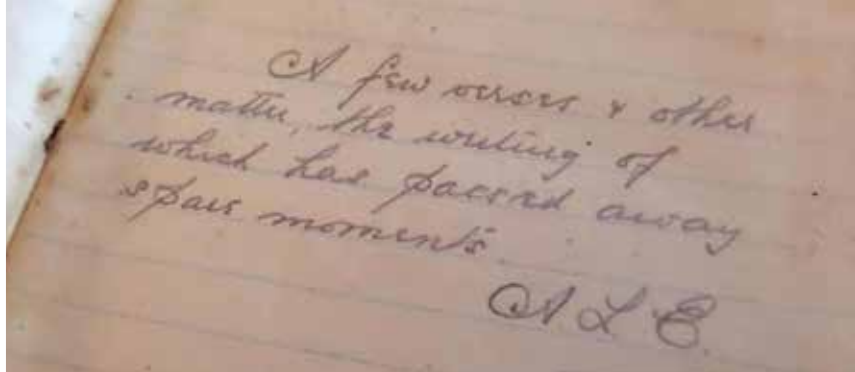 A few verses & other
matter, the writing of
which has passed away
spare moments
A L E.